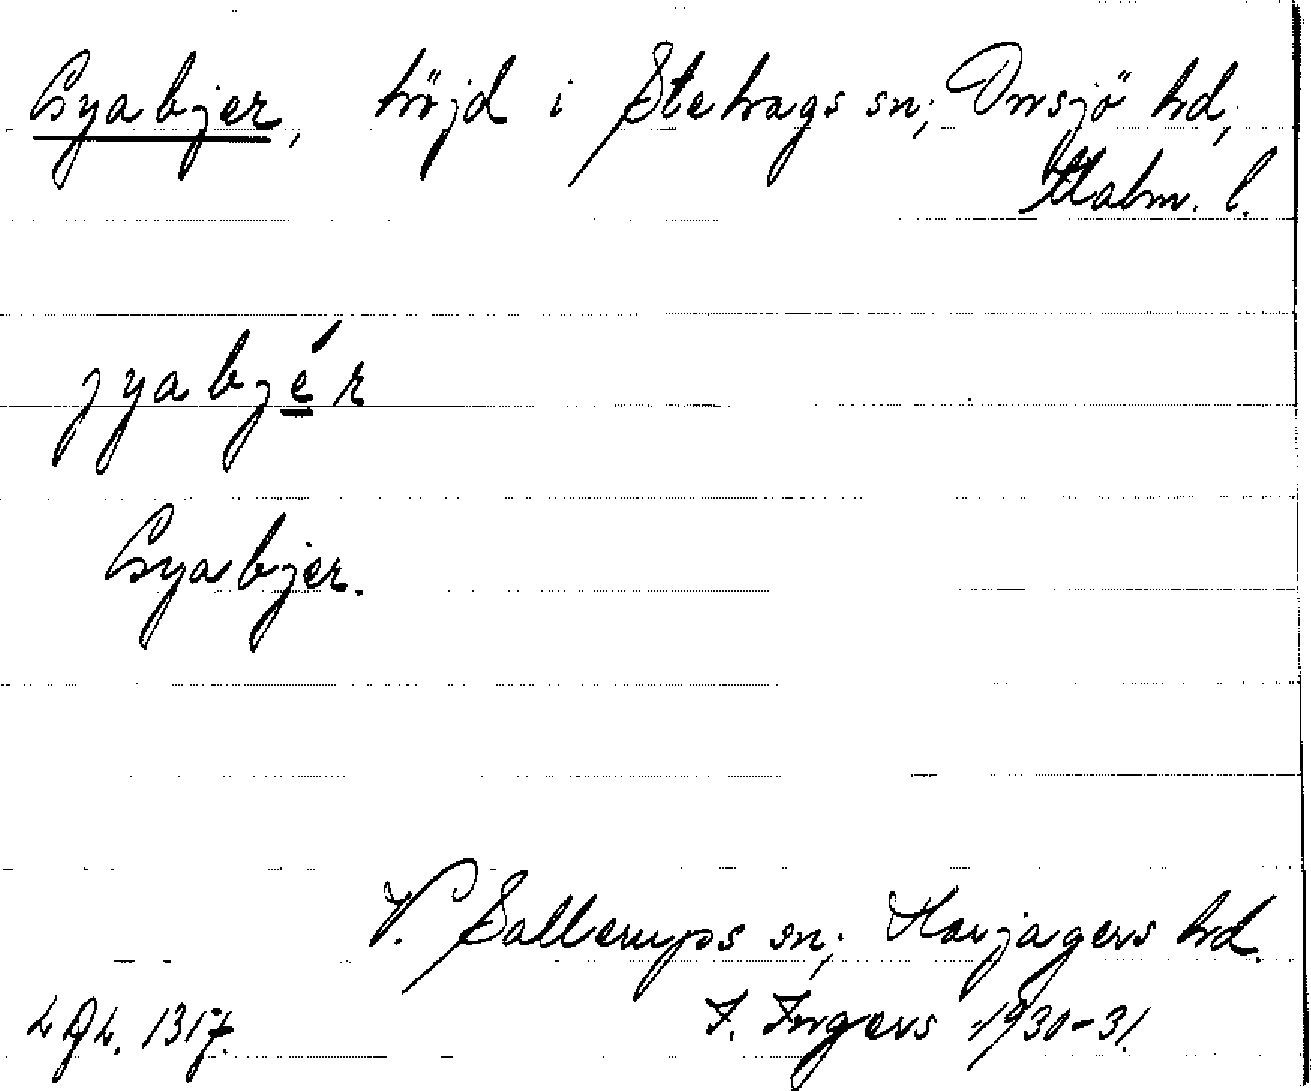 Gyabjer, höjd i Stehags sn; Onsjö hd,
Malm. l.
gyabjér
Gyabjer.
V. Sallerups sn; Harjagers hd.
LAL. 1317. I. Ingers 1930-31.